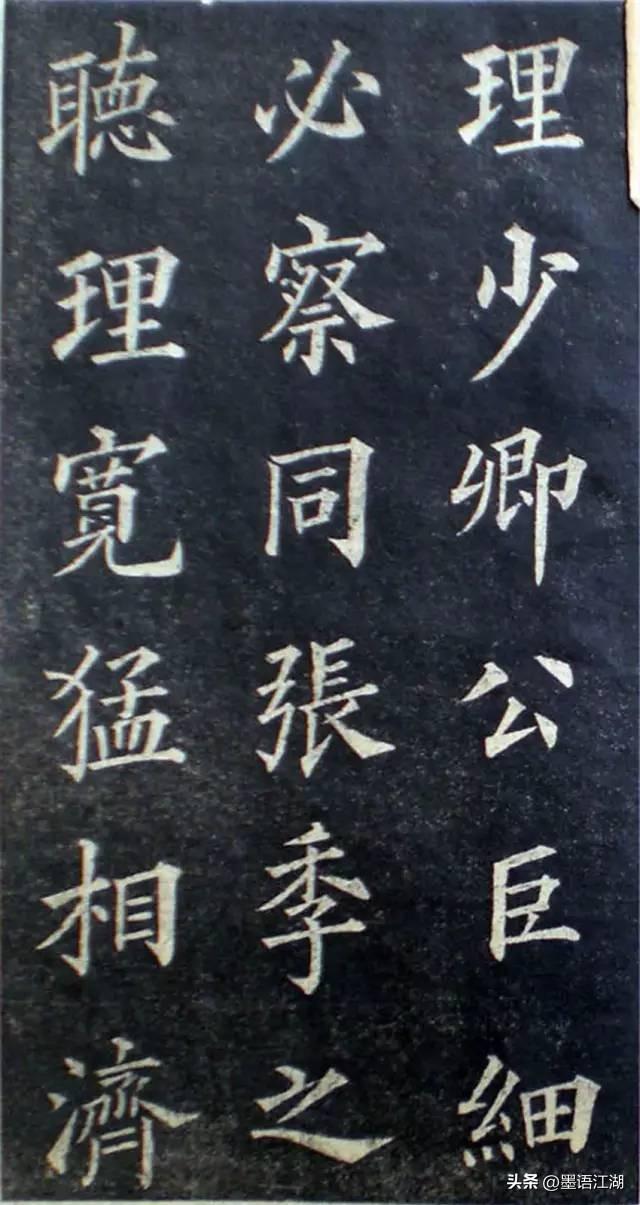 理少卿公巨細
必察同張季之
聴理寛猛相濟
头条 @墨语江湖